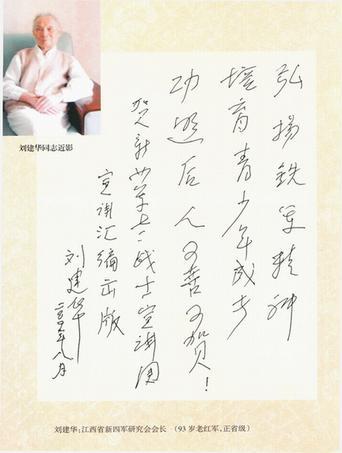 刘建华同志近影
弘揚鉄军精神
培育青少年成才
功后人可喜可贺！
贺新四军老战士宣讲团
宣讲汇编出版
刘建华
年八月
刘建华：江西省新四军研究会会长 （93岁老红军，正省级）